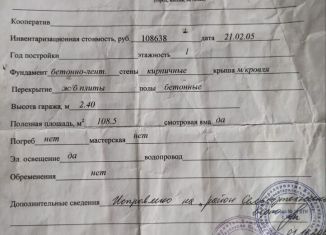 Кооператив
Инвентаризационная стоимость, руб. 108638 дата 21.02.05
Год постройки этажность 1
Фундамент бетонно-лент. стены кирпичные крыша м/кровля
Перекрытие ж/б плиты полы бетонные
Высота гаража, м 2.40
Полезная площадь, м² 108.5 смотровая яма да
Погреб нет мастерская нет
Эл. освещение да водопровод
Обременения нет
Дополнительные сведения Исправлено на "район